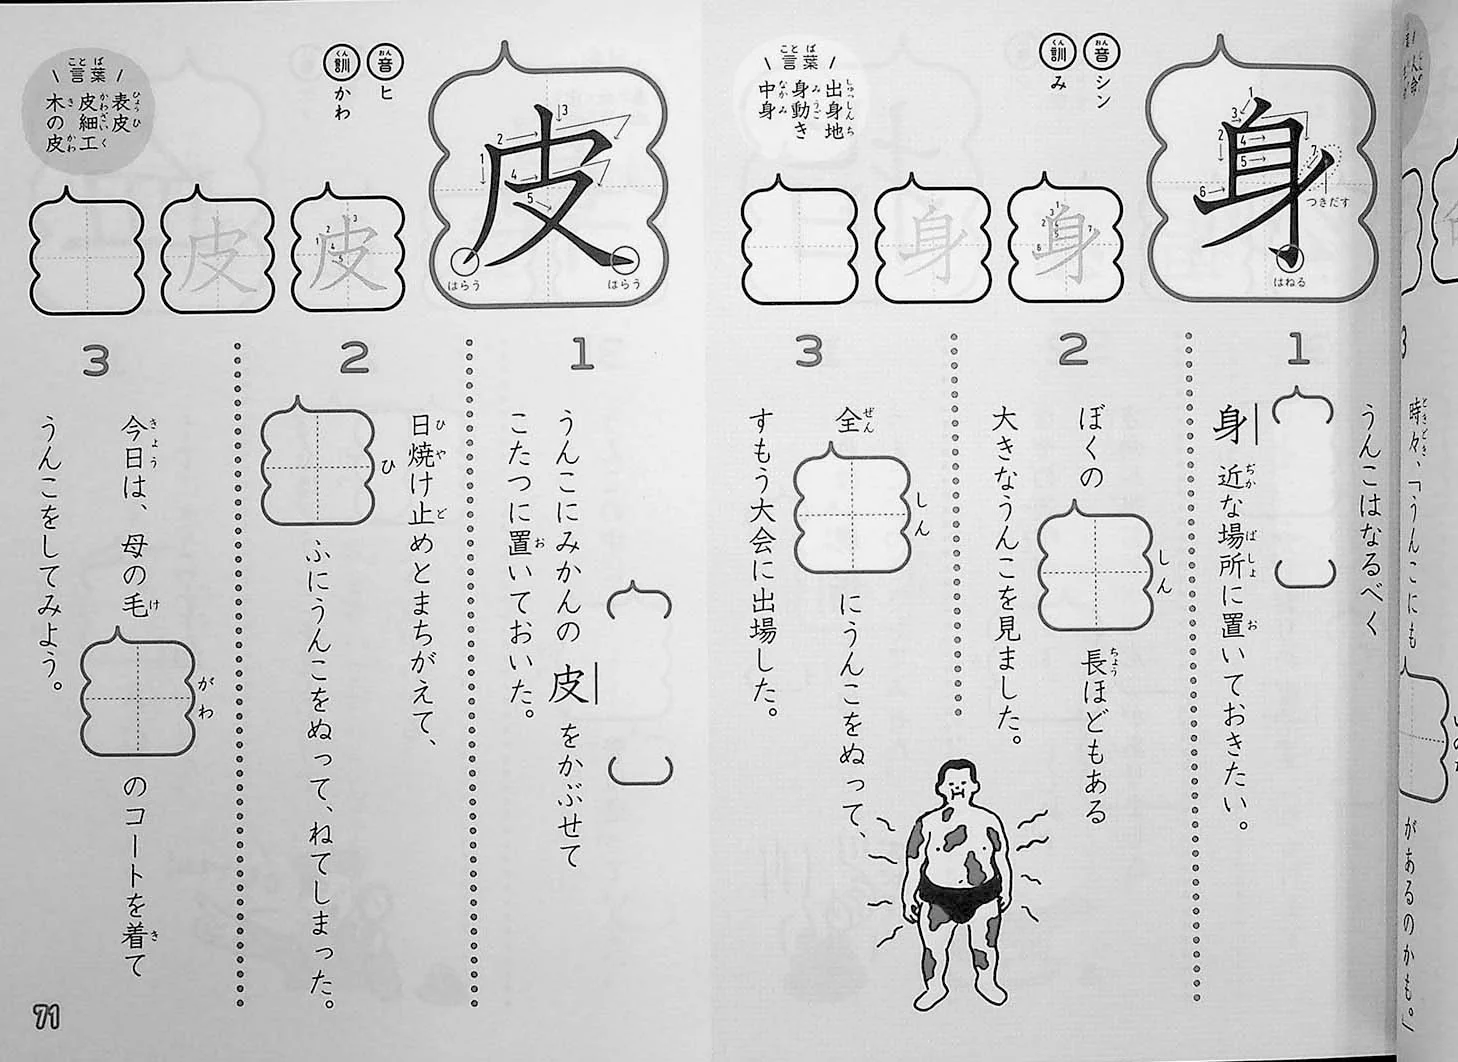 時々、「うんこにも
があるのかも。」
身
音 シン
訓 み
言葉
出身地
身動き
中身
つきだす
はねる
1
うんこはなるべく
身近な場所に置いておきたい。
2
ぼくの しん 長ほどもある
大きなうんこを見ました。
3
全 しん にうんこをぬって、
すもう大会に出場した。
皮
音 ヒ
訓 かわ
言葉
表皮
皮細工
木の皮
はらう
はらう
1
うんこにみかんの皮をかぶせて
こたつに置いておいた。
2
日焼け止めとまちがえて、
ひ ふにうんこをぬって、ねてしまった。
3
今日は、母の毛 がわ のコートを着て
うんこをしてみよう。
71